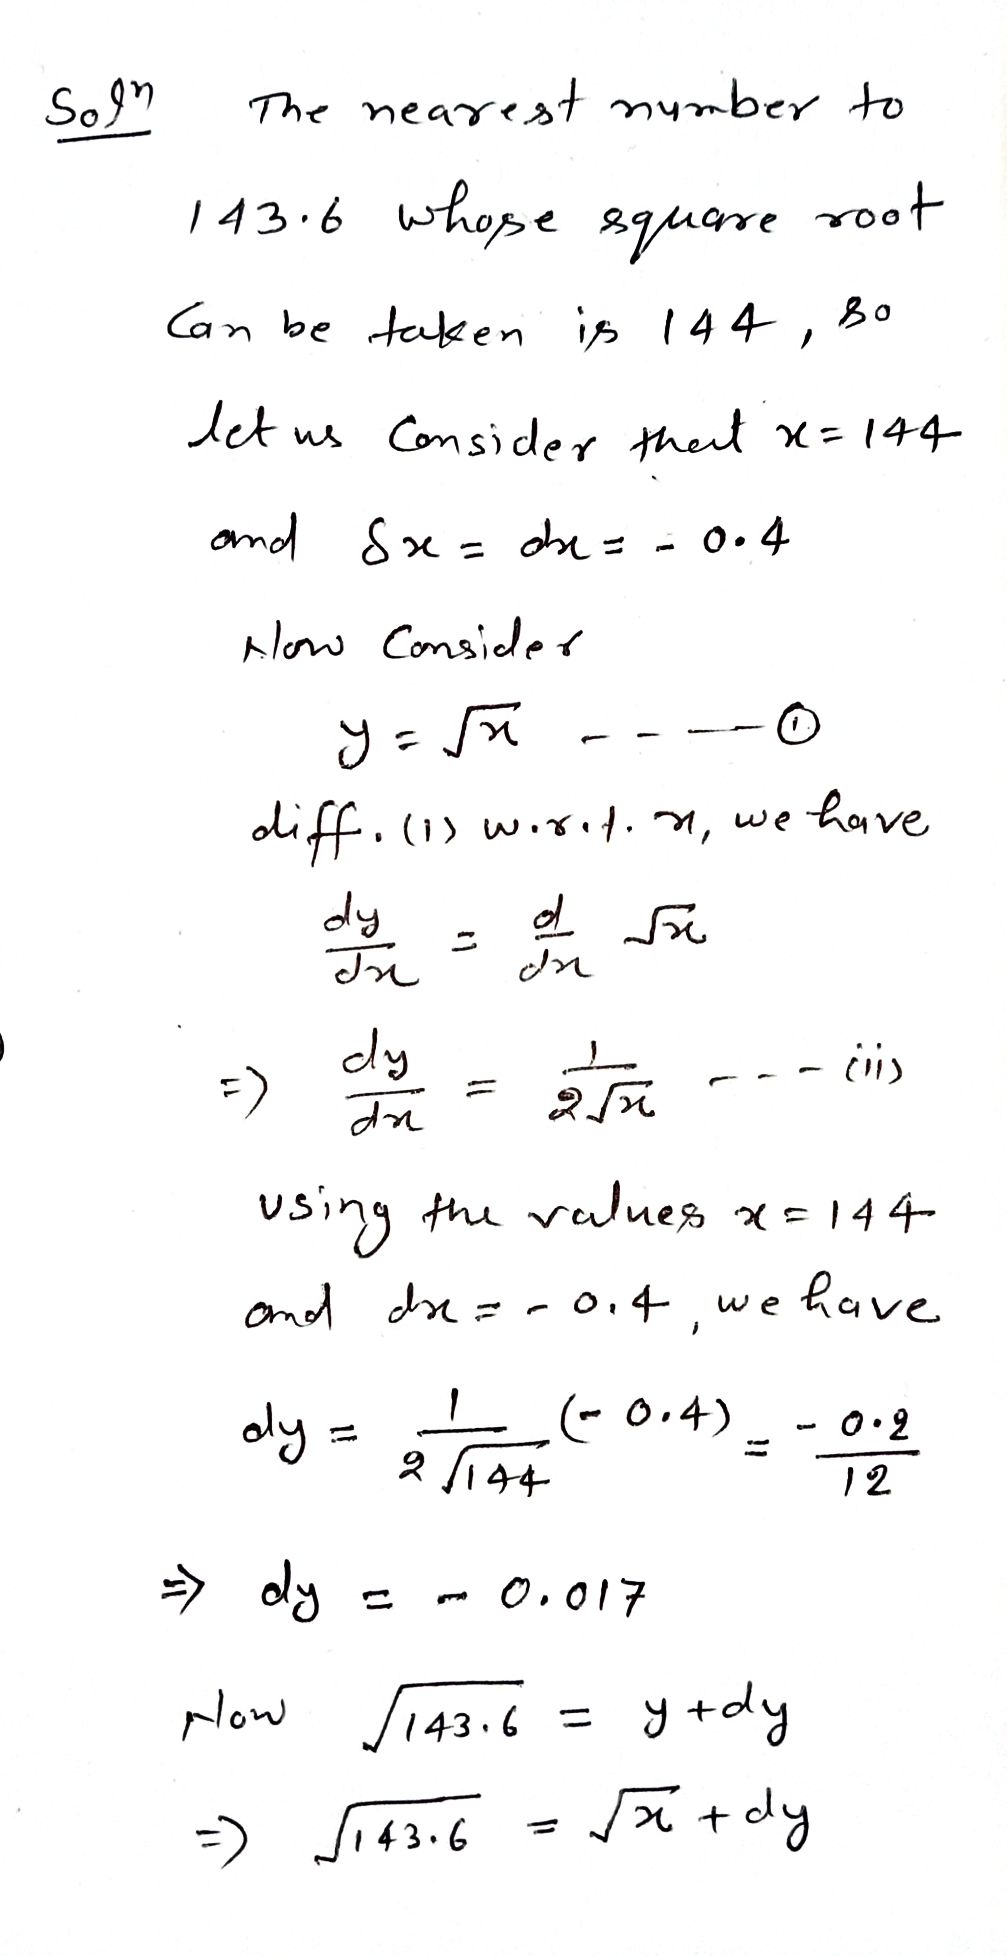 Soln The nearest number to
143.6 whose square root
Can be taken is 144, so
let us Consider that x = 144
and δx = dx = - 0.4
Now Consider
y = √x - - - — ①
diff. (i) w.r.t. x, we have
dy/dx = d/dx √x
=> dy/dx = 1/2√x - - - (ii)
using the values x = 144
and dx = - 0.4, we have
dy = 1/2√144 (- 0.4) = - 0.2/12
=> dy = - 0.017
Now √143.6 = y + dy
=> √143.6 = √x + dy